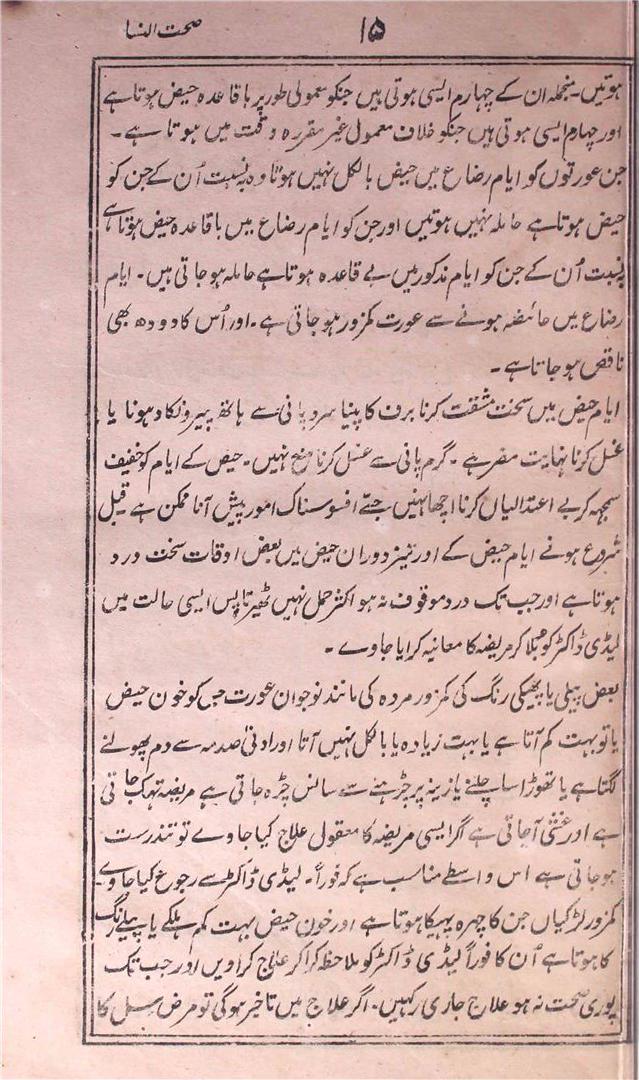 صحت النسا
۱۵
ہوتیں۔ منجملہ ان کے چہارم ایسی ہوتی ہیں جنکو معمولی طور پر باقاعدہ حیض ہوتا ہے
اور چہارم ایسی ہوتی ہیں جنکو خلاف معمول غیر مقررہ وقت میں ہوتا ہے۔
جن عورتوں کو ایام رضاع میں حیض بالکل نہیں ہوتا وہ بہ نسبت اُن کے جن کو
حیض ہوتا ہے حاملہ نہیں ہوتیں اور جن کو ایام رضاع میں باقاعدہ حیض ہوتا ہے
بہ نسبت اُن کے جن کو ایام مذکور میں بے قاعدہ ہوتا ہے حاملہ ہو جاتی ہیں۔ ایام
رضاع میں حائضہ ہونے سے عورت کمزور ہو جاتی ہے۔ اور اُس کا دودھ بھی
ناقص ہو جاتا ہے۔
ایام حیض میں سخت مشقت کرنا برف کا پینا سرد پانی سے ہاتھ پیرونکا دھونا یا
غسل کرنا نہایت مضر ہے۔ گرم پانی سے غسل کرنا منع نہیں۔ حیض کے ایام کو خفیف
سمجہہ کر بے اعتدالیاں کرنا اچھا نہیں جسے افسوسناک امور پیش آنا ممکن ہے قبل
شروع ہونے ایام حیض کے اور نیز دوران حیض میں بعض اوقات سخت درد
ہوتا ہے اور جب تک درد موقوف نہ ہو اکثر حمل نہیں ٹھیرتا پس ایسی حالت میں
لیڈی ڈاکٹر کو بُلا کر مریضہ کا معانیہ کرایا جاوے۔
بعض پیلی یا پھیکی رنگ کی کمزور مردہ کی مانند نوجوان عورت جس کو خون حیض
یا تو بہت کم آتا ہے یا بہت زیادہ یا بالکل نہیں آتا اور ادنیٰ صدمہ سے دم پھولنے
لگتا ہے یا تھوڑا سا چلنے یا زینہ پر چڑہنے سے سانس چڑہ جاتی ہے مریضہ تہک جاتی
ہے اور غشی آجاتی ہے اگر ایسی مریضہ کا معقول علاج کیا جاوے تو تندرست
ہو جاتی ہے اس واسطے مناسب ہے کہ فوراً۔ لیڈی ڈاکٹر سے رجوع کیا جاوے۔
کمزور لڑکیاں جن کا چہرہ پہیکا ہوتا ہے اور خون حیض بہت کم ہلکے یا پیلے رنگ
کا ہوتا ہے اُن کا فوراً لیڈی ڈاکٹر کو ملاحظہ کرا کر علاج کراویں اور جب تک
پوری صحت نہ ہو علاج جاری رکہیں۔ اگر علاج میں تاخیر ہوگی تو مرض سل کا